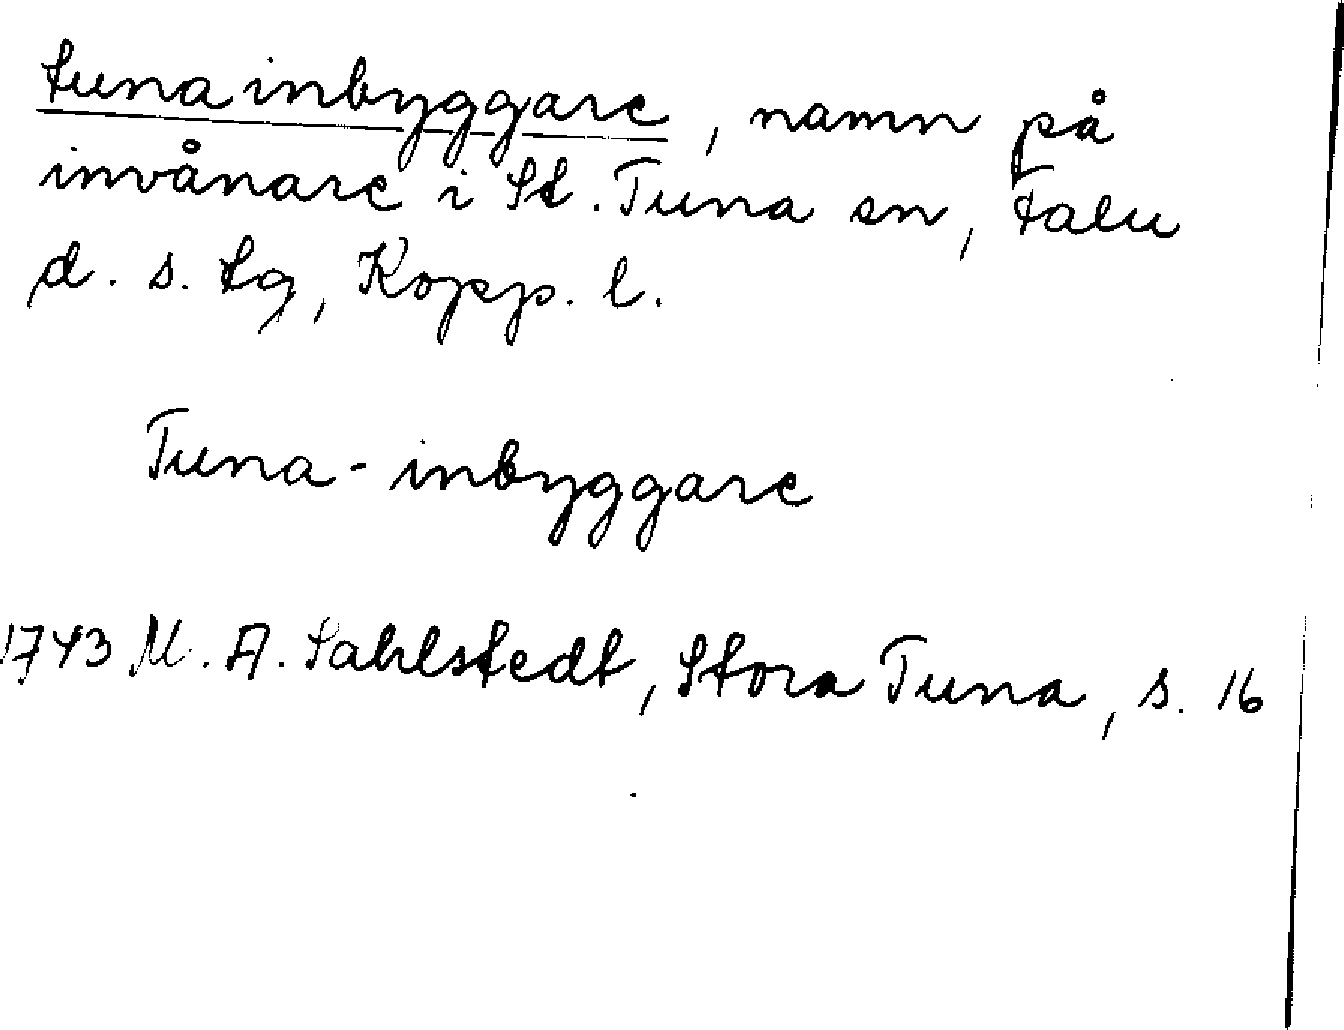 tunainbyggare, namn på
invånare i St. Tuna sn, Falu
d. s. tg, Kopp. l.
Tuna-inbyggare
1743 M. A. Sahlstedt, Stora Tuna, s. 16